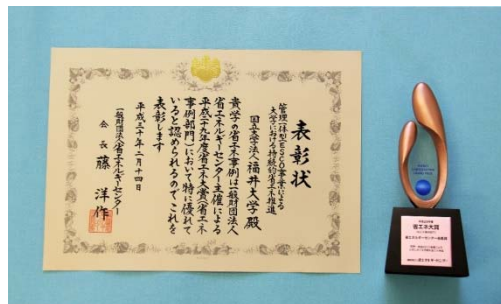 表彰状
管理一体型ESCO事業による
大学における持続的省エネ推進
国立大学法人福井大学殿
貴学の省エネ事例は一般財団法人
省エネルギーセンター主催による
平成二十九年度省エネ大賞(省エネ
事例部門)において特に優れて
いると認められるのでこれを
表彰します
平成三十年二月十四日
一般財団法人省エネルギーセンター
会長 藤 洋作
省エネ大賞
省エネルギーセンター会長賞